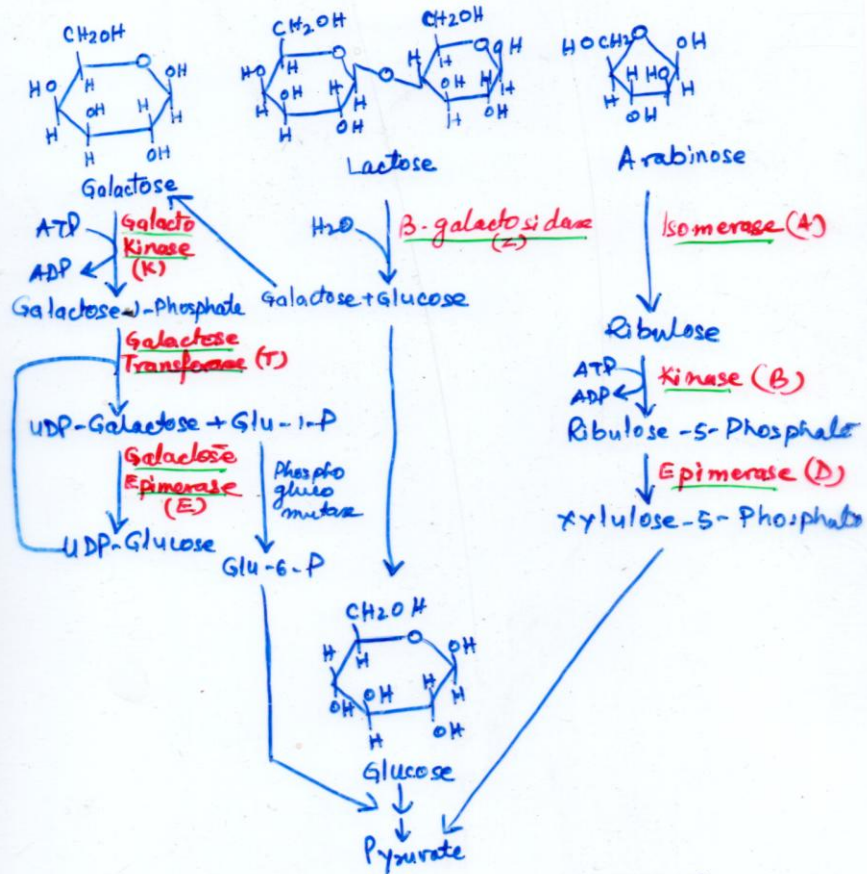 CH2OH
O
H
OH
HO
H
OH
H
H
H
OH
Galactose
ATP
ADP
Galacto
Kinase
(K)
Galactose-1-Phosphate
Galactose
Transferase (T)
UDP-Galactose + Glu-1-P
Galactose
Epimerase
(E)
Phospho
gluco
mutase
UDP-Glucose
Glu-6-P
CH2OH
O
H
HO
OH
H
H
H
H
OH
O
CH2OH
O
OH
H
H
OH
H
H
H
OH
Lactose
H2O
B-galactosidase
(Z)
Galactose + Glucose
CH2OH
O
H
H
OH
OH
OH
H
H
H
OH
Glucose
Pyruvate
HOCH2
O
OH
H
H
HO
H
OH
H
Arabinose
Isomerase (A)
Ribulose
ATP
ADP
Kinase (B)
Ribulose-5-Phosphate
Epimerase (D)
Xylulose-5-Phosphate